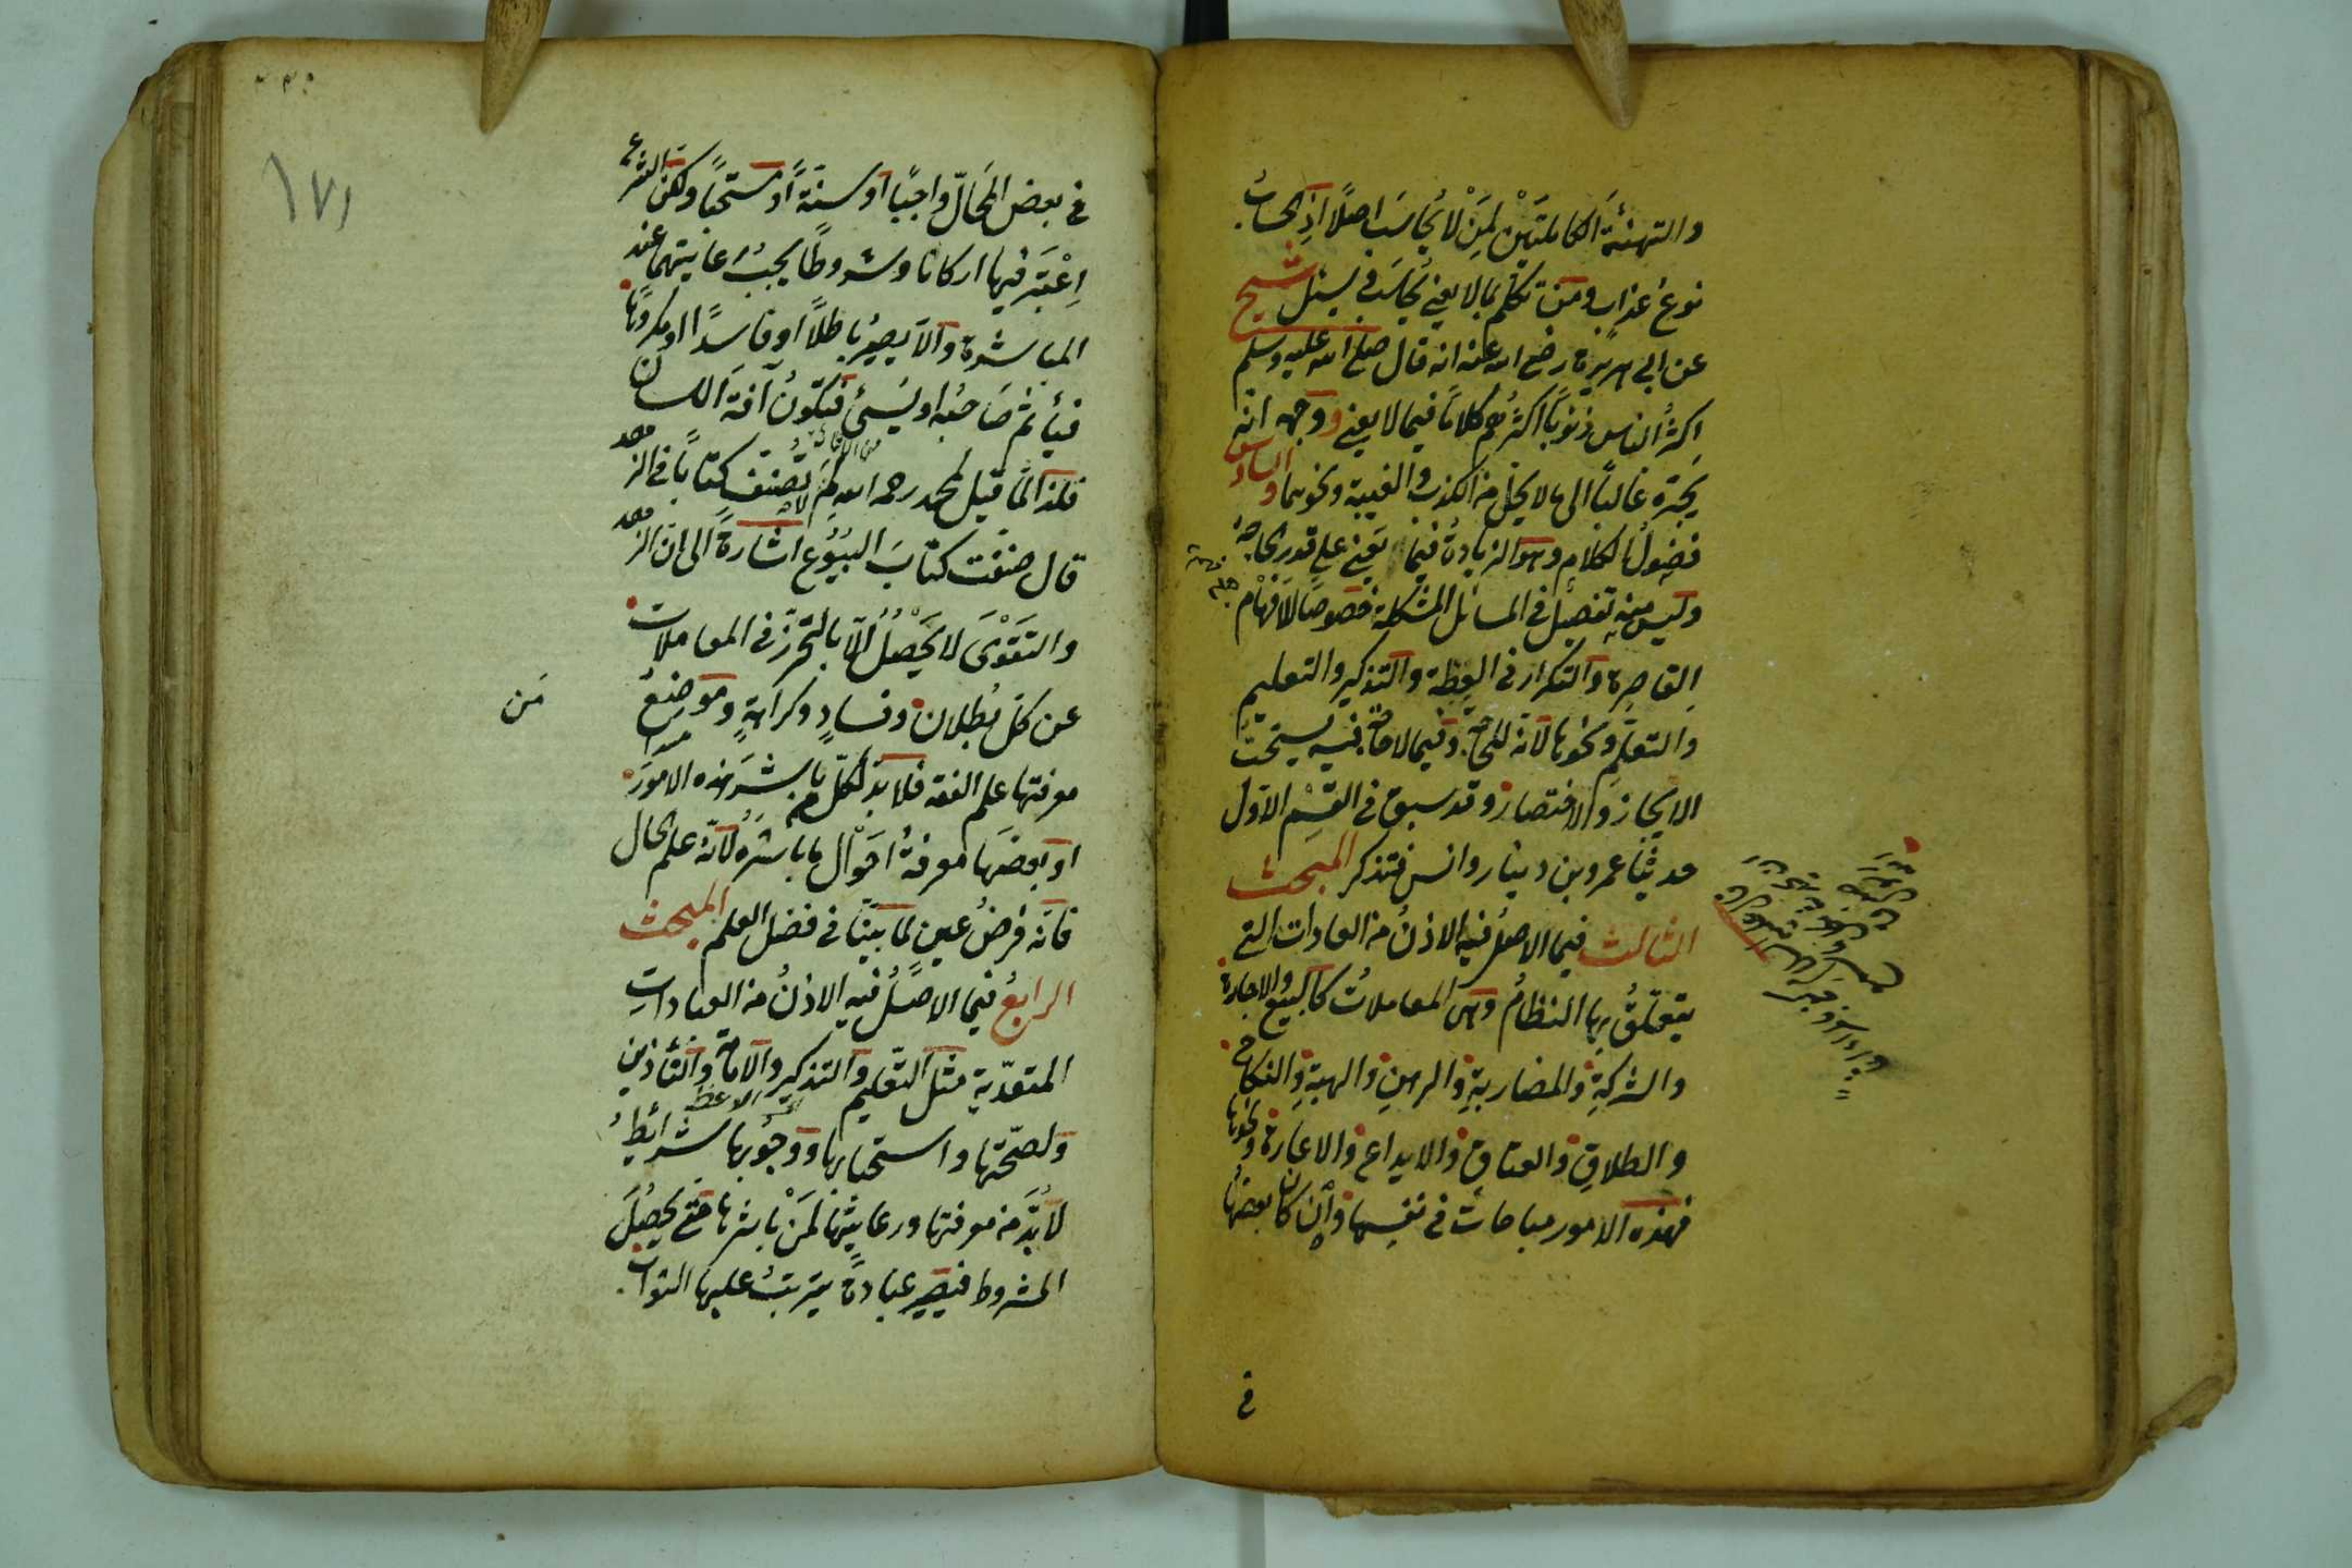 والتهنئة الكاملتين لمن لا يحاسب اصلا اذ الحساب
نوع عذاب ومن تكلم بما لا يعني يحاسب فيسئل شيخ
عن ابي هريرة رضي الله عنه انه قال صلى الله عليه وسلم
اكثر الناس ذنوبا اكثرهم كلاما فيما لا يعني ووجهه انه
يجره غالبا الى ما لا يحل من الكذب والغيبة ونحوهما والسادس
فضول الكلام وهو الزيادة فيما يعني على قدر الحاجة
وليس منه تفصيل في المسائل المشكلة خصوصا للافهام
القاصرة والتكرار في العظة والتذكير والتعليم
والتعلم ونحوها لانه للحاجة وفيما لا حاجة فيه يستحب
الايجاز والاختصار وقد سبق في القسم الاول
حديثا عمرو بن دينار وانس فتذكر المبحث
الثالث فيما الاصل فيه الاذن من العادات التي
يتعلق بها النظام وهي المعاملات كالبيع والاجارة
والشركة والمضاربة والرهن والهبة والنكاح
والطلاق والعتاق والايداع والاعارة ونحوها
فهذه الامور مباحات في نفسها وان كان بعضها
في
١٧١
في بعض المحال واجبا او سنة او مستحبا ولكن الشرع
اعتبر فيها اركانا وشروطا يجب رعايتهما عند
المباشرة والا يصير باطلا او فاسدا او مكروها
فيأثم صاحبه او يسئ فتكون آفة اللسان
فلذا لما قيل لمحمد رحمه الله لم لا تصنف كتابا في الزهد
قال صنفت كتاب البيوع اشارة الى ان الزهد
والتقوى لا يحصل الا بالتحرز في المعاملات
عن كل بطلان وفساد وكراهة وموضع
من
معرفتها علم الفقه فلا بد لكل من باشر هذه الامور
او بعضها معرفة احوال ما باشره لانه علم الحال
فانه فرض عين لما بينا في فضل العلم المبحث
الرابع فيما الاصل فيه الاذن من العبادات
المتعدية مثل التعليم والتذكير والامامة والتأذين
ولصحتها واستحبابها ووجوبها شرائط
لا بد من معرفتها ورعايتها لمن باشرها حتى يحصل
المشروط فيصير عبادة يترتب عليها الثواب